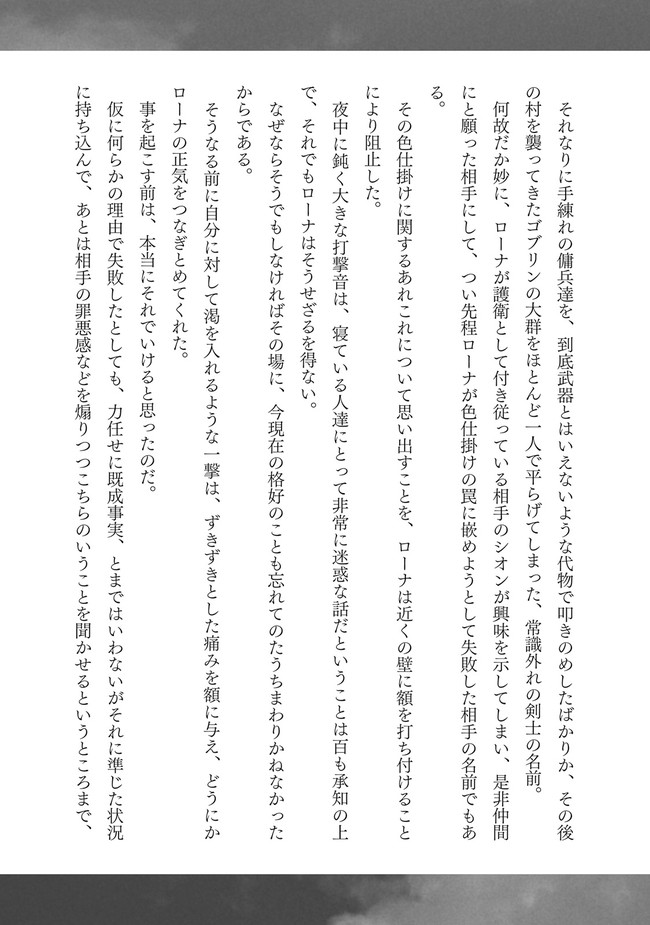 それなりに手練れの傭兵達を、到底武器とはいえないような代物で叩きのめしたばかりか、その後
の村を襲ってきたゴブリンの大群をほとんど一人で平らげてしまった、常識外れの剣士の名前。
何故だか妙に、ローナが護衛として付き従っている相手のシオンが興味を示してしまい、是非仲間
にと願った相手にして、つい先程ローナが色仕掛けの罠に嵌めようとして失敗した相手の名前でもあ
る。
その色仕掛けに関するあれこれについて思い出すことを、ローナは近くの壁に額を打ち付けること
により阻止した。
夜中に鈍く大きな打撃音は、寝ている人達にとって非常に迷惑な話だということは百も承知の上
で、それでもローナはそうせざるを得ない。
なぜならそうでもしなければその場に、今現在の格好のことも忘れてのたうちまわりかねなかった
からである。
そうなる前に自分に対して渇を入れるような一撃は、ずきずきとした痛みを額に与え、どうにか
ローナの正気をつなぎとめてくれた。
事を起こす前は、本当にそれでいけると思ったのだ。
仮に何らかの理由で失敗したとしても、力任せに既成事実、とまではいわないがそれに準じた状況
に持ち込んで、あとは相手の罪悪感などを煽りつつこちらのいうことを聞かせるというところまで、